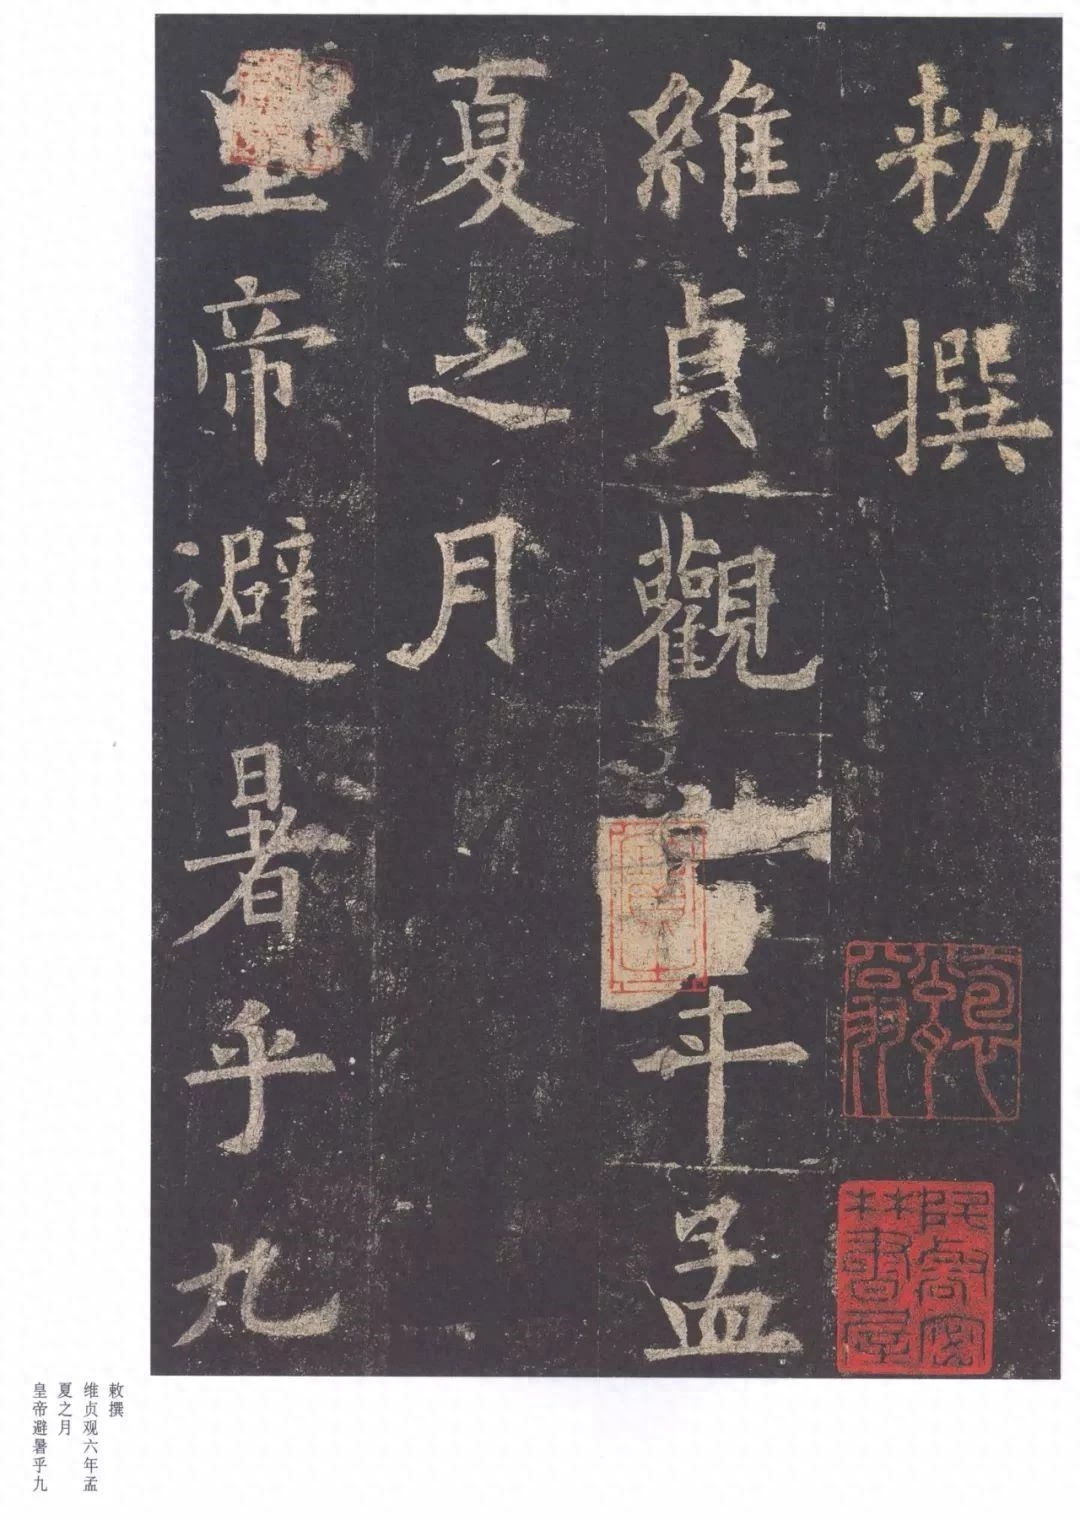 勑撰
維貞觀
年孟
夏之月
皇帝避暑乎九
敕撰
维贞观六年孟
夏之月
皇帝避暑乎九